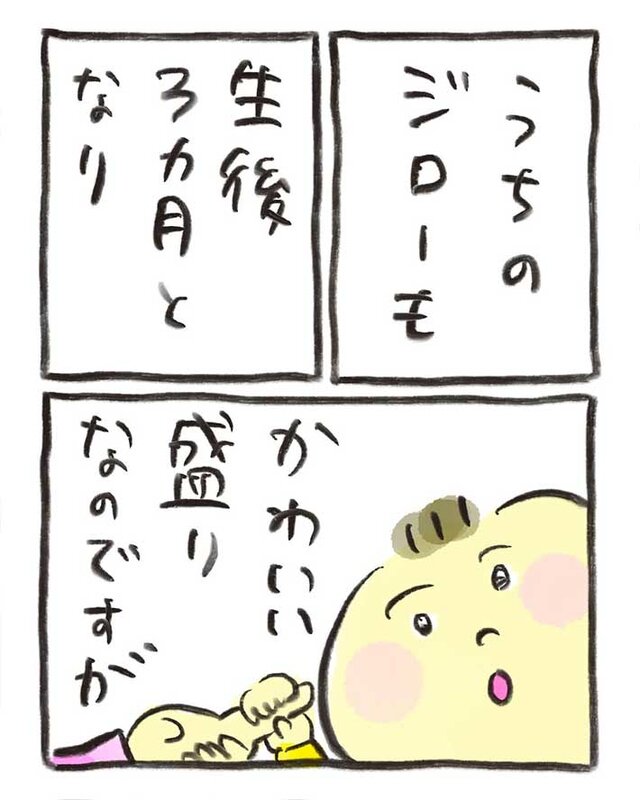 うちの
ジローも
生後
3カ月と
なり
かわいい
盛り
なのですが